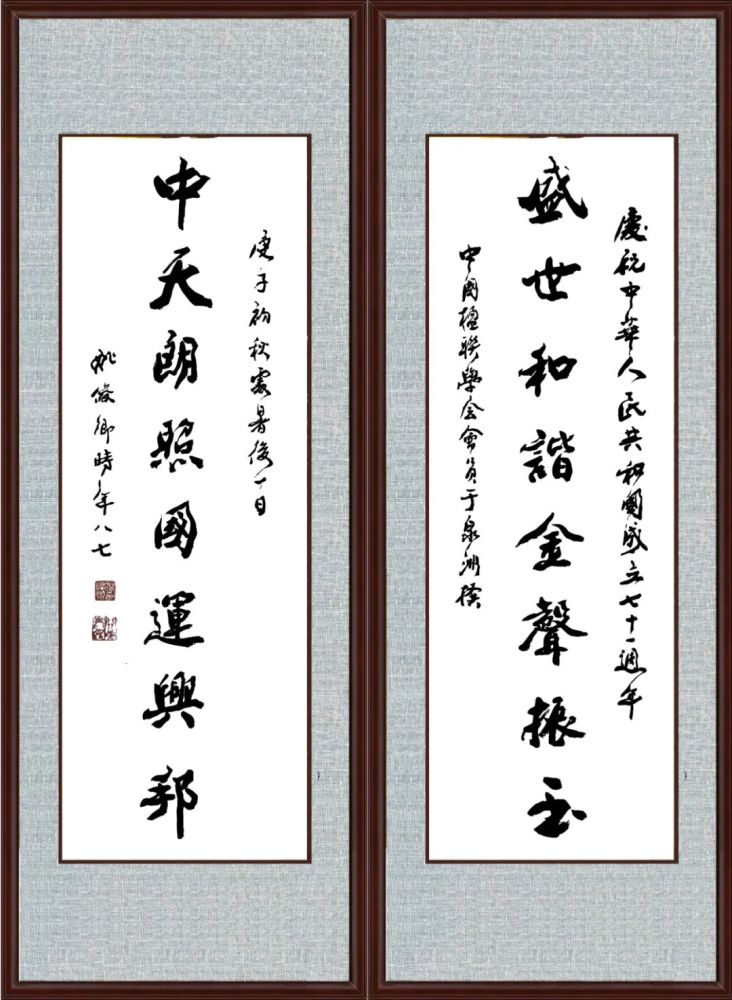 慶祝中華人民共和國成立七十一週年
盛世和諧金聲振玉
中国楹联學会會员于泉洲撰
中天朗照國運興邦
庚子初秋處暑後一日
姚俊卿時年八七